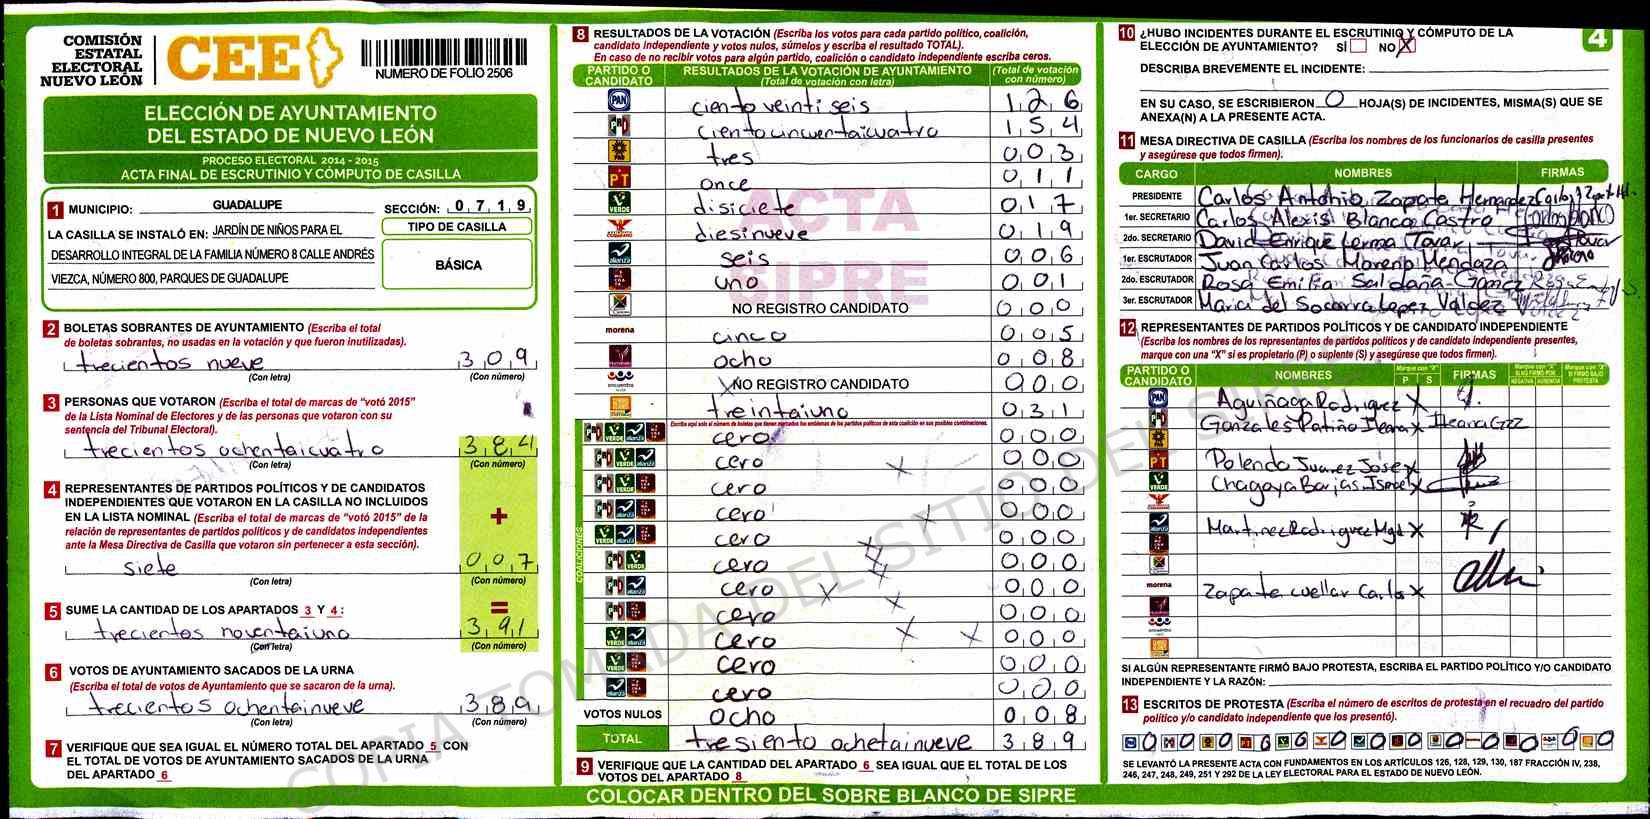 COMISIÓN
ESTATAL
ELECTORAL
NUEVO LEÓN
CEE
NUMERO DE FOLIO 2506
ELECCIÓN DE AYUNTAMIENTO
DEL ESTADO DE NUEVO LEÓN
PROCESO ELECTORAL 2014 - 2015
ACTA FINAL DE ESCRUTINIO Y CÓMPUTO DE CASILLA
1 MUNICIPIO: GUADALUPE SECCIÓN: 0 7 1 9
LA CASILLA SE INSTALÓ EN: JARDÍN DE NIÑOS PARA EL
DESARROLLO INTEGRAL DE LA FAMILIA NÚMERO 8 CALLE ANDRÉS
VIEZCA, NÚMERO 800, PARQUES DE GUADALUPE
TIPO DE CASILLA
BÁSICA
2 BOLETAS SOBRANTES DE AYUNTAMIENTO (Escriba el total
de boletas sobrantes, no usadas en la votación y que fueron inutilizadas).
trecientos nueve 3 0 9
(Con letra) (Con número)
3 PERSONAS QUE VOTARON (Escriba el total de marcas de "votó 2015"
de la Lista Nominal de Electores y de las personas que votaron con su
sentencia del Tribunal Electoral).
trecientos ochentaicuatro 3 8 4
(Con letra) (Con número)
4 REPRESENTANTES DE PARTIDOS POLÍTICOS Y DE CANDIDATOS
INDEPENDIENTES QUE VOTARON EN LA CASILLA NO INCLUIDOS
EN LA LISTA NOMINAL (Escriba el total de marcas de "votó 2015" de la
relación de representantes de partidos políticos y de candidatos independientes
ante la Mesa Directiva de Casilla que votaron sin pertenecer a esta sección).
+
siete 0 0 7
(Con letra) (Con número)
5 SUME LA CANTIDAD DE LOS APARTADOS 3 Y 4 : =
trecientos noventaiuno 3 9 1
(Con letra) (Con número)
6 VOTOS DE AYUNTAMIENTO SACADOS DE LA URNA
(Escriba el total de votos de Ayuntamiento que se sacaron de la urna).
trecientos ochentainueve 3 8 9
(Con letra) (Con número)
7 VERIFIQUE QUE SEA IGUAL EL NÚMERO TOTAL DEL APARTADO 5 CON
EL TOTAL DE VOTOS DE AYUNTAMIENTO SACADOS DE LA URNA
DEL APARTADO 6
8 RESULTADOS DE LA VOTACIÓN (Escriba los votos para cada partido político, coalición,
candidato independiente y votos nulos, súmelos y escriba el resultado TOTAL).
En caso de no recibir votos para algún partido, coalición o candidato independiente escriba ceros.
PARTIDO O CANDIDATO RESULTADOS DE LA VOTACIÓN DE AYUNTAMIENTO (Total de votación con letra) (Total de votación con número)
PAN ciento veinti seis 1 2 6
PRD ciento cincuentaicuatro 1 5 4
PRD tres 0 0 3
PT once 0 1 1
VERDE disiciete 0 1 7
diesinueve 0 1 9
alianza seis 0 0 6
uno 0 0 1
NO REGISTRO CANDIDATO 0 0 0
morena cinco 0 0 5
ocho 0 0 8
encuentro NO REGISTRO CANDIDATO 0 0 0
treintaiuno 0 3 1
Escriba aquí solo el número de boletas que tienen marcados los emblemas de los partidos políticos de esta coalición en sus posibles combinaciones.
COALICIONES
cero 0 0 0
cero 0 0 0
cero 0 0 0
cero 0 0 0
cero 0 0 0
cero 0 0 0
cero 0 0 0
cero 0 0 0
cero 0 0 0
cero 0 0 0
cero 0 0 0
VOTOS NULOS ocho 0 0 8
TOTAL tresiento ochetainueve 3 8 9
9 VERIFIQUE QUE LA CANTIDAD DEL APARTADO 6 SEA IGUAL QUE EL TOTAL DE LOS
VOTOS DEL APARTADO 8
COLOCAR DENTRO DEL SOBRE BLANCO DE SIPRE
ACTA
SIPRE
COPIA TOMADA DEL SITIO DEL S
10 ¿HUBO INCIDENTES DURANTE EL ESCRUTINIO Y CÓMPUTO DE LA
ELECCIÓN DE AYUNTAMIENTO? SÍ NO X
4
DESCRIBA BREVEMENTE EL INCIDENTE:
EN SU CASO, SE ESCRIBIERON 0 HOJA(S) DE INCIDENTES, MISMA(S) QUE SE
ANEXA(N) A LA PRESENTE ACTA.
11 MESA DIRECTIVA DE CASILLA (Escriba los nombres de los funcionarios de casilla presentes
y asegúrese que todos firmen).
CARGO NOMBRES FIRMAS
PRESIDENTE Carlos Antonio Zapata Hernandez
1er. SECRETARIO Carlos Alexis Blanco Castro
2do. SECRETARIO David Enrique Lerma Tovar
1er. ESCRUTADOR Juan Carlos Moreno Mendoza
2do. ESCRUTADOR Rosa Emilia Saldaña Gomez
3er. ESCRUTADOR Maria del Socorro Lopez Valdez
12 REPRESENTANTES DE PARTIDOS POLÍTICOS Y DE CANDIDATO INDEPENDIENTE
(Escriba los nombres de los representantes de partidos políticos y de candidato independiente presentes,
marque con una "X" si es propietario (P) o suplente (S) y asegúrese que todos firmen).
PARTIDO O CANDIDATO NOMBRES P S FIRMAS
PAN Aguiñaga Rodriguez X
Gonzales Patiño Ileana X Ileana Gzz
PT Polendo Juarez Jose X
VERDE Chagoya Barjas Ismael X
Martinez Rodriguez Mgd X
morena Zapata cuellar Carlos X
SI ALGÚN REPRESENTANTE FIRMÓ BAJO PROTESTA, ESCRIBA EL PARTIDO POLÍTICO Y/O CANDIDATO
INDEPENDIENTE Y LA RAZÓN:
13 ESCRITOS DE PROTESTA (Escriba el número de escritos de protesta en el recuadro del partido
político y/o candidato independiente que los presentó).
0 0 0 0 0 0 0 0 0 0 0 0 0
SE LEVANTÓ LA PRESENTE ACTA CON FUNDAMENTOS EN LOS ARTÍCULOS 126, 128, 129, 130, 187 FRACCIÓN IV, 238,
246, 247, 248, 249, 251 Y 292 DE LA LEY ELECTORAL PARA EL ESTADO DE NUEVO LEÓN.